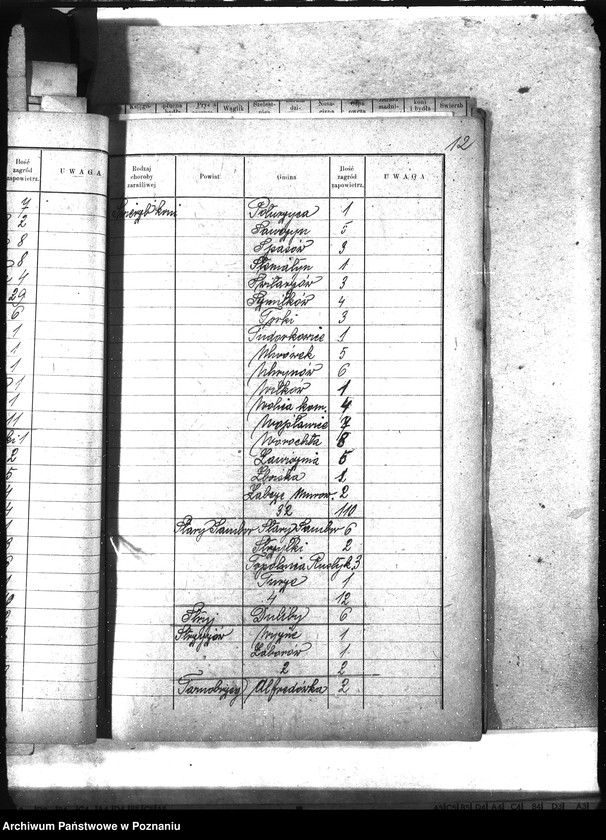 12
Ilość zagród zapowietrz. UWAGA
7
2
8
8
4
29
6
1
1
1
1
1
11
Rodzaj choroby zaraźliwej Powiat Gmina Ilość zagród zapowietrz. UWAGA
Świerzb koni Poturzyca 1
Sawczyn 5
Spasów 3
1
3
4
Torki 3
Tudorkowice 1
Uhrówek 5
Uhrynów 6
Wilków 1
Wolica kom. 4
Wojsławice 7
Worochta 8
Zawisznia 5
Zboiska 1
Żabcze Murow. 2
32 110
Stary Sambor Stary Sambor 6
Strzyłki 2
Topolnica Rustyk. 3
Turze 1
4 12
Stryj Duliby 6
Strzyżów 1
Zaborów 1
2 2
Tarnobrzeg Alfredówka 2
Archiwum Państwowe w Poznaniu